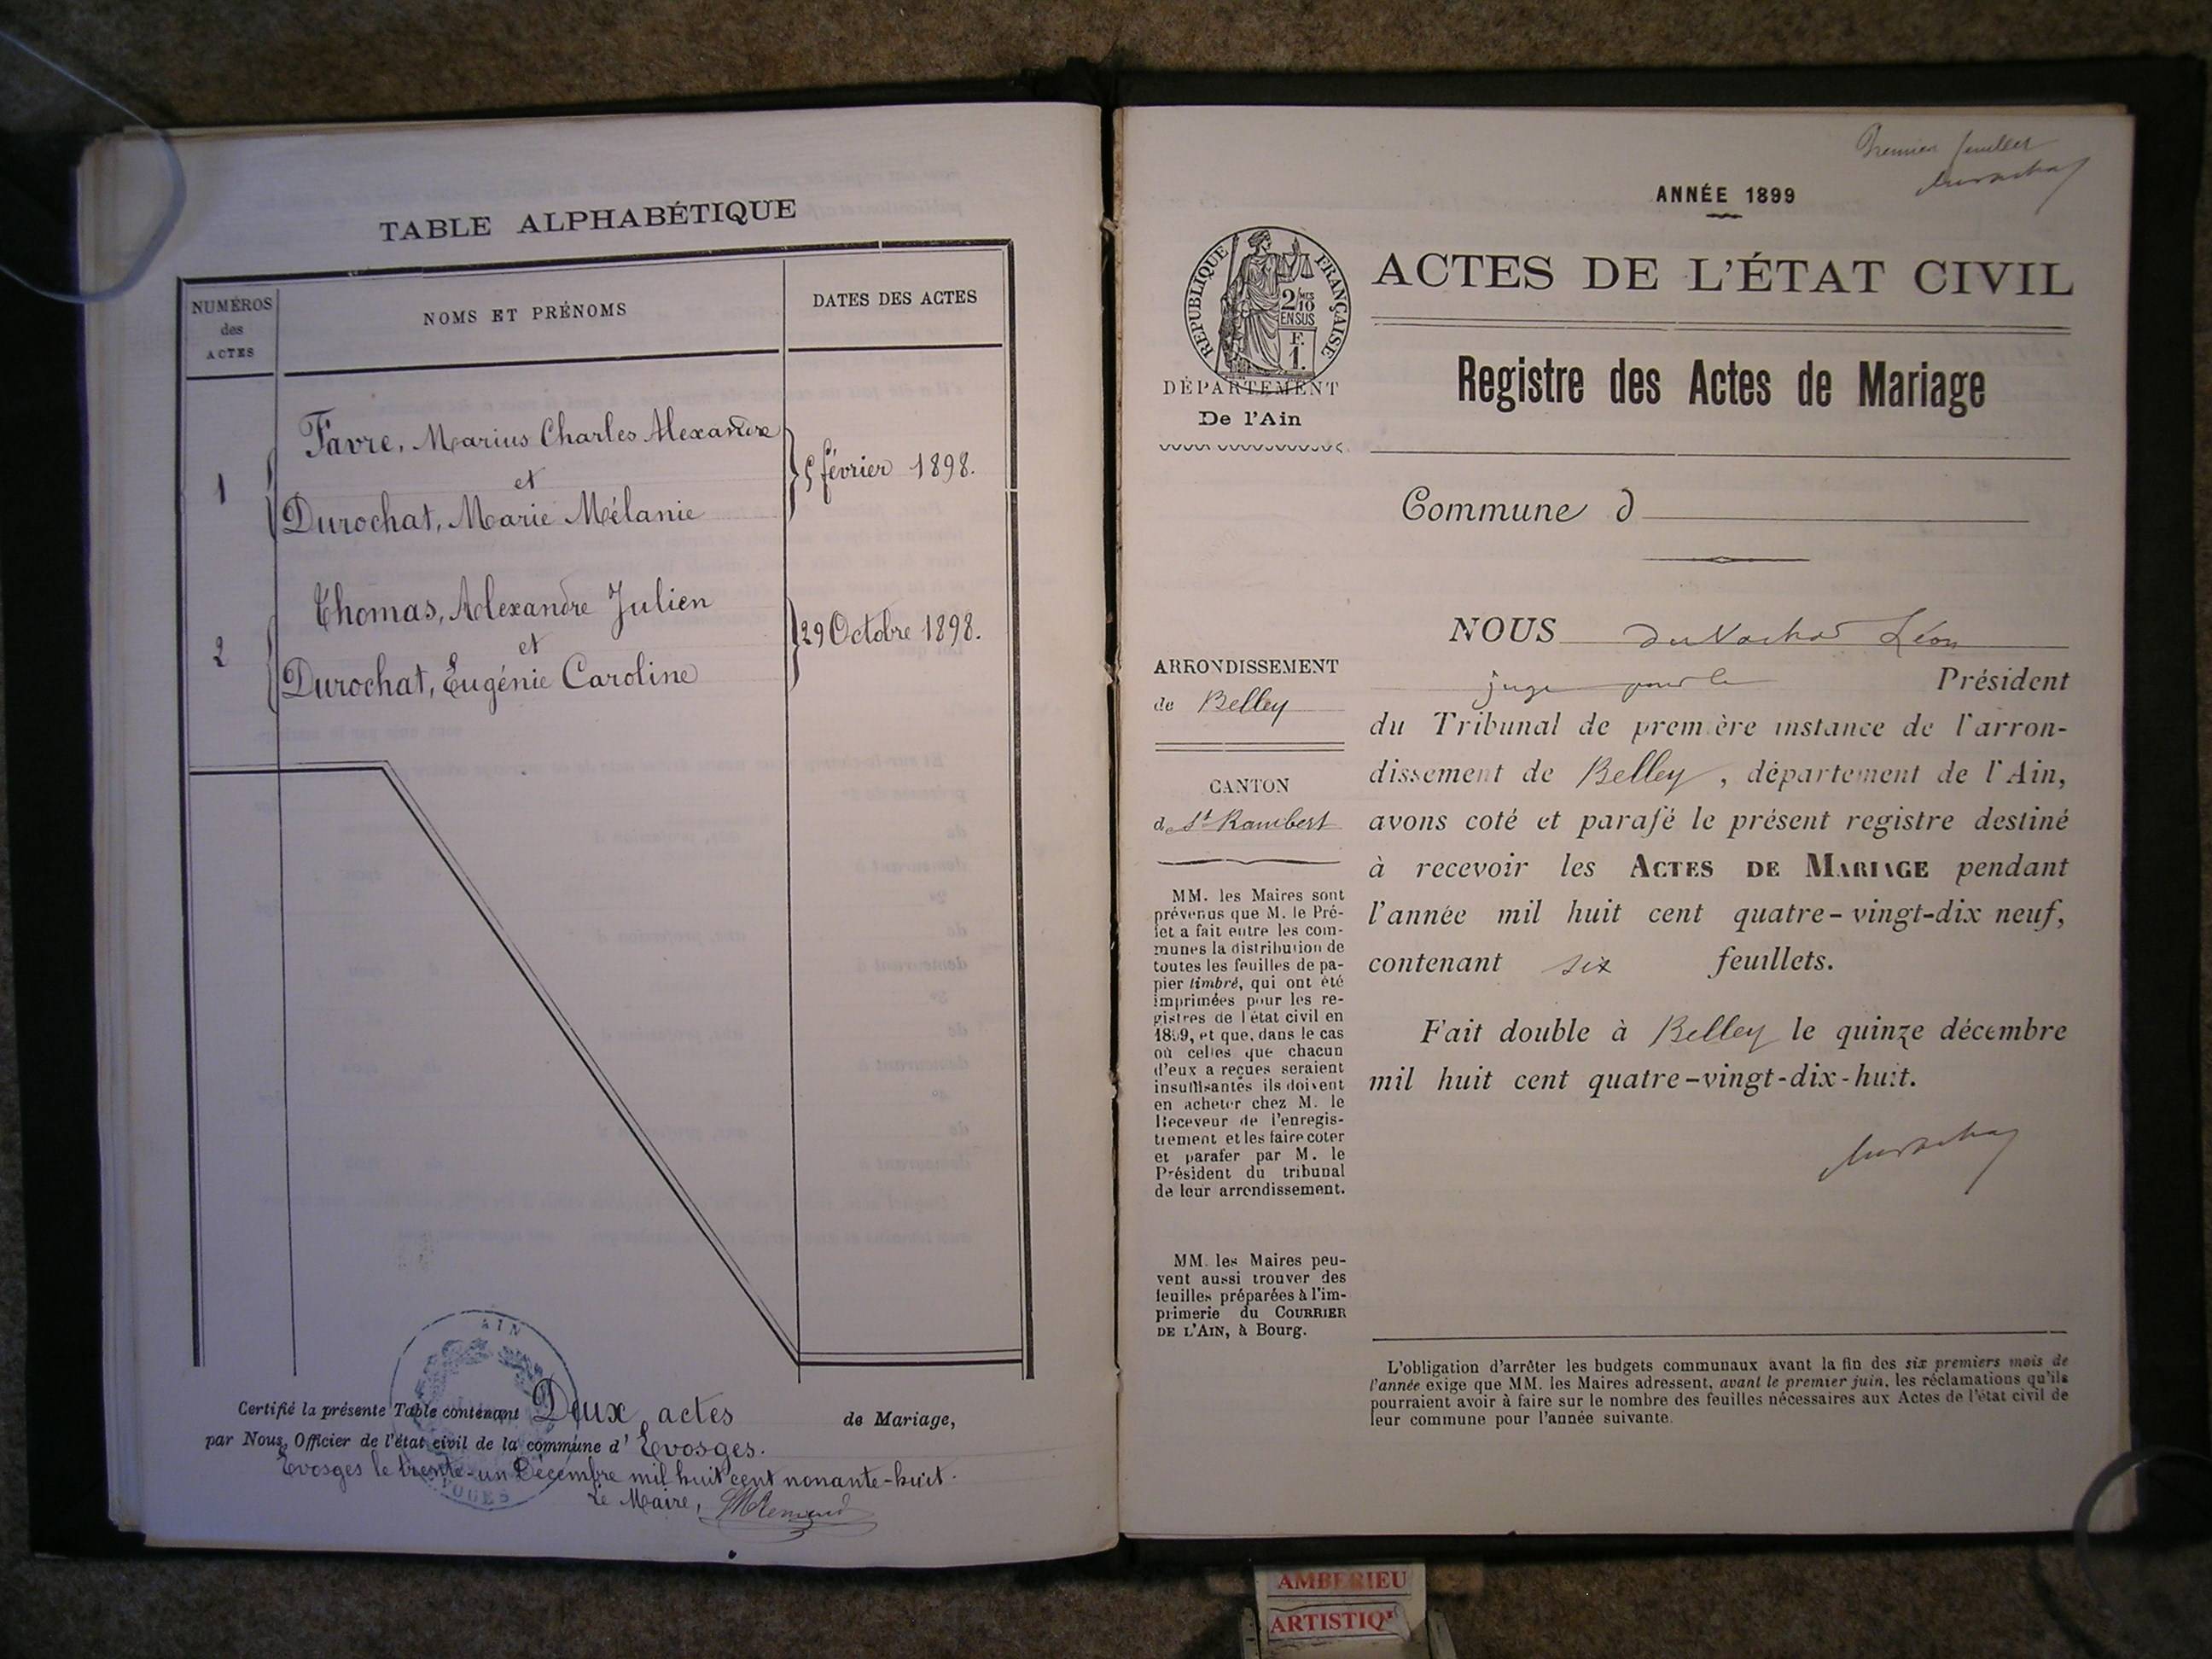 TABLE ALPHABÉTIQUE
NUMÉROS
des
ACTES
NOMS ET PRÉNOMS
DATES DES ACTES
1
Favre, Marius Charles Alexandre
et
Durochat, Marie Mélanie
5 février 1898.
2
Thomas, Alexandre Julien
et
Durochat, Eugénie Caroline
29 Octobre 1898.
Certifié la présente Table contenant Deux actes de Mariage,
par Nous, Officier de l'état civil de la commune d' Evosges.
Evosges le trente-un Décembre mil huit cent nonante-huit.
Le Maire,
AIN
Premier feuillet
ANNÉE 1899
RÉPUBLIQUE FRANÇAISE
2/10 MES
EN SUS
F.
1.
DÉPARTEMENT
De l'Ain
ACTES DE L'ÉTAT CIVIL
Registre des Actes de Mariage
Commune d
ARRONDISSEMENT
de Belley
CANTON
de St Rambert
MM. les Maires sont
prévenus que M. le Pré-
fet a fait entre les com-
munes la distribution de
toutes les feuilles de pa-
pier timbré, qui ont été
imprimées pour les re-
gistres de l'état civil en
1899, et que, dans le cas
où celles que chacun
d'eux a reçues seraient
insuffisantes ils doivent
en acheter chez M. le
Receveur de l'enregis-
trement et les faire coter
et parafer par M. le
Président du tribunal
de leur arrondissement.
MM. les Maires peu-
vent aussi trouver des
feuilles préparées à l'im-
primerie du COURRIER
DE L'AIN, à Bourg.
NOUS Durochat Léon
juge pour le Président
du Tribunal de première instance de l'arron-
dissement de Belley, département de l'Ain,
avons coté et parafé le présent registre destiné
à recevoir les ACTES DE MARIAGE pendant
l'année mil huit cent quatre-vingt-dix neuf,
contenant six feuillets.
Fait double à Belley le quinze décembre
mil huit cent quatre-vingt-dix-huit.
Durochat
L'obligation d'arrêter les budgets communaux avant la fin des six premiers mois de
l'année exige que MM. les Maires adressent, avant le premier juin, les réclamations qu'ils
pourraient avoir à faire sur le nombre des feuilles nécessaires aux Actes de l'état civil de
leur commune pour l'année suivante.
AMBERIEU
ARTISTIQ